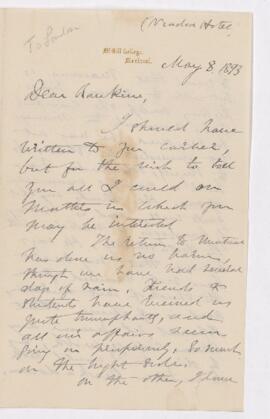 (Windsor Hotel)
To London
McGill College,
Montreal.
May 8, 1893
Dear Rankine,
I should have
written to you earlier,
but for the wish to tell
you all I could on
matters in which you
may be interested
The return to Montreal
has done us no harm,
though we have had several
days of rain. Friends &
students have received us
quite triumphantly, and
all our affairs seem
going on prosperously. So much
on the bright side.
On the other, I have